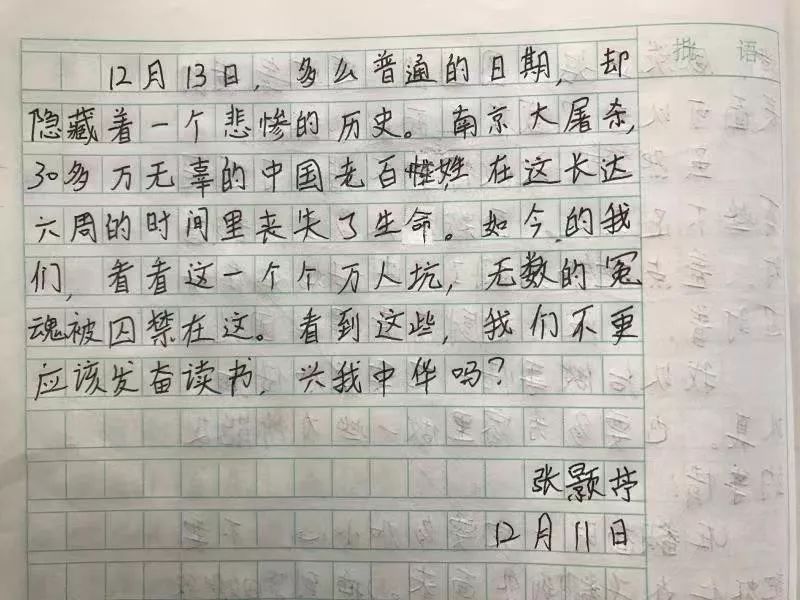 批语
12月13日，多么普通的日期，却
隐藏着一个悲惨的历史。南京大屠杀，
30多万无辜的中国老百姓，在这长达
六周的时间里丧失了生命。如今的我
们，看看这一个个万人坑，无数的冤
魂被囚禁在这。看到这些，我们不更
应该发奋读书，兴我中华吗？
张颢婷
12月11日